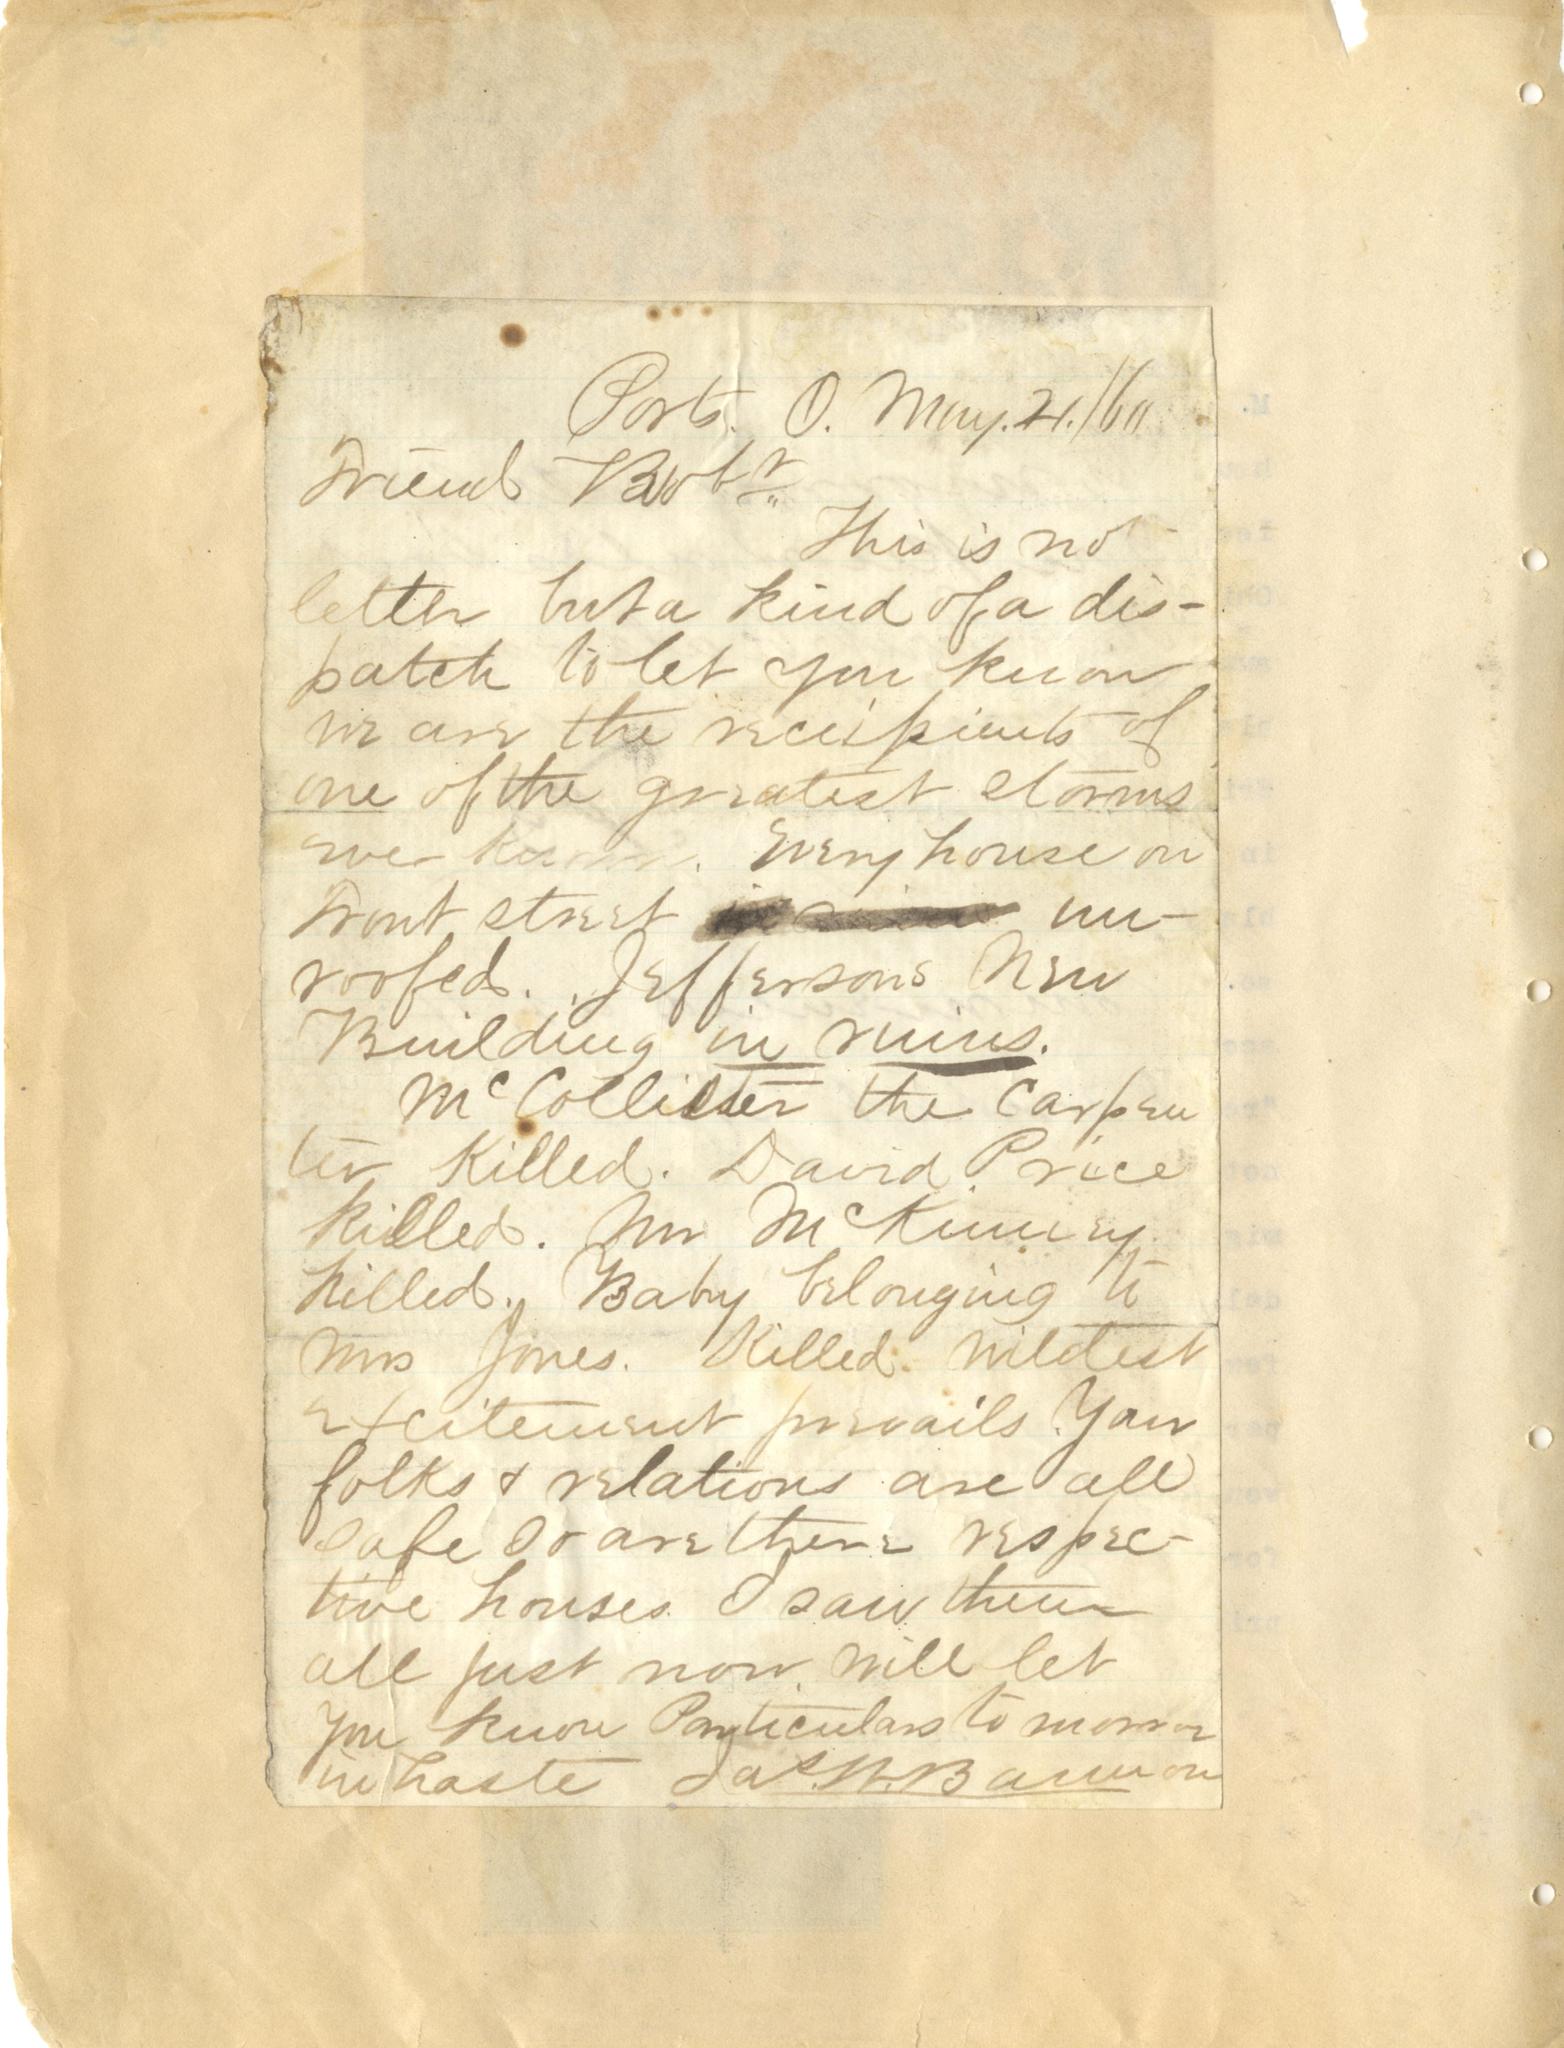 Ports. O. May. 21./60
Friend Rob.t
This is no
letter but a kind of a dis-
patch to let you know
we are the recipients of
one of the greatest storms
ever known. Every house on
Front street un-
roofed. Jeffersons New
Building in ruins.
McCollister the Carpen
ter Killed. David Price
killed. Mr McKinney
killed. Baby belonging to
Mrs Jones. Killed. wildest
excitement prevails. Your
folks & relations are all
safe so are there respec-
tive houses I saw them
all just now. will let
you know Particulars to morrow
in haste Jas. W. Bannon